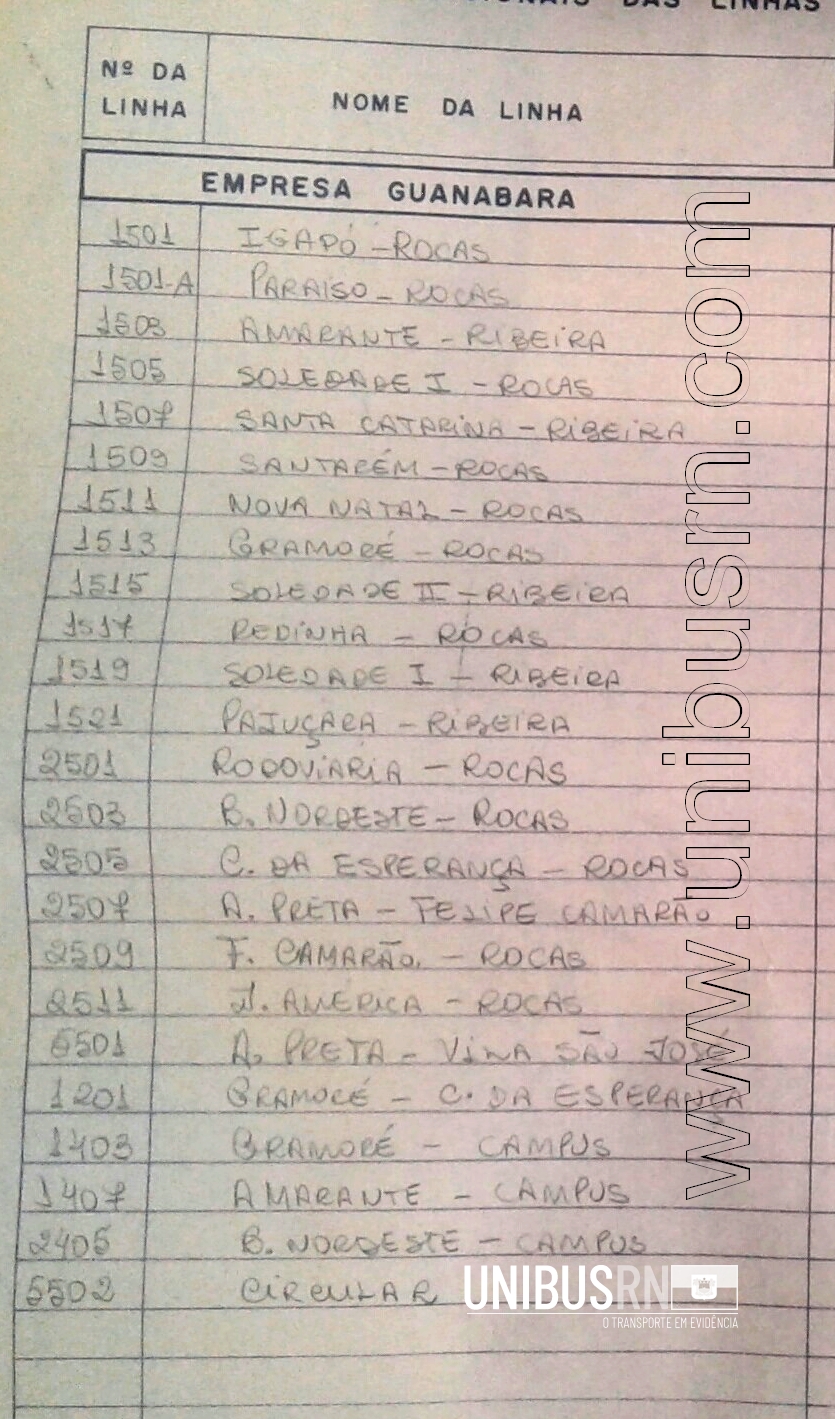 DAS LINHAS
Nº DA LINHA NOME DA LINHA
EMPRESA GUANABARA
1501 IGAPÓ - ROCAS
1501-A PARAISO - ROCAS
1503 AMARANTE - RIBEIRA
1505 SOLEDADE I - ROCAS
1507 SANTA CATARINA - RIBEIRA
1509 SANTARÉM - ROCAS
1511 NOVA NATAL - ROCAS
1513 GRAMORÉ - ROCAS
1515 SOLEDADE II - RIBEIRA
1517 REDINHA - ROCAS
1519 SOLEDADE I - RIBEIRA
1521 PAJUÇARA - RIBEIRA
2501 RODOVIÁRIA - ROCAS
2503 B. NORDESTE - ROCAS
2505 C. DA ESPERANÇA - ROCAS
2507 A. PRETA - FELIPE CAMARÃO
2509 F. CAMARÃO. - ROCAS
2511 J. AMÉRICA - ROCAS
6501 A. PRETA - VILA SÃO JOSÉ
1201 GRAMORÉ - C. DA ESPERANÇA
1403 GRAMORÉ - CAMPUS
1407 AMARANTE - CAMPUS
2405 B. NORDESTE - CAMPUS
5502 CIRCULAR
www.unibusrn.com
UNIBUSRN
O TRANSPORTE EM EVIDÊNCIA